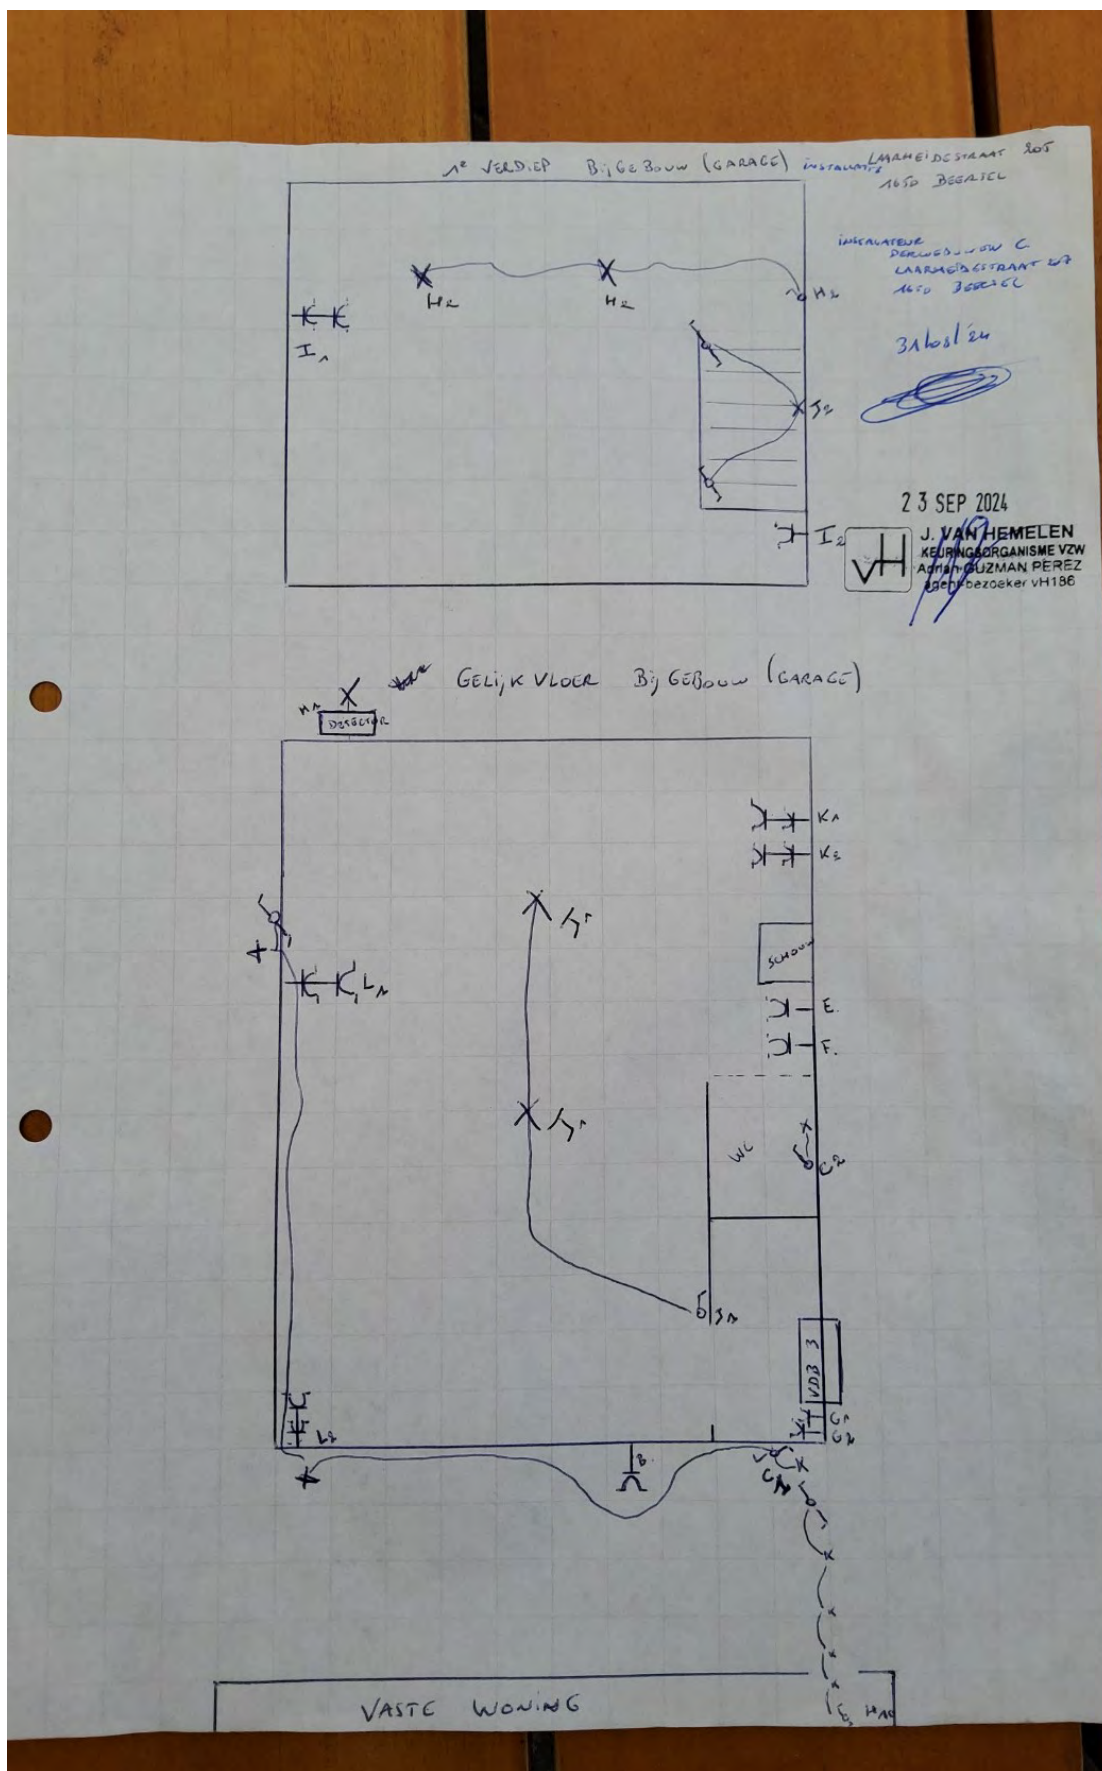 1e VERDIEP BijGEBOUW (GARAGE)
LAARHEIDESTRAAT 205
1650 BEERSEL
INSTALLATEUR
LAARHEIDESTRAAT 207
1650 BEERSEL
31/08/24
H2
H2
H2
I1
J2
I2
23 SEP 2024
vH
J. VAN HEMELEN
KEURINGSORGANISME VZW
Adrian GUZMAN PEREZ
agent-bezoeker vH186
GELijKVLOER BijGEBOUW (GARAGE)
H1
DETECTOR
K1
K2
J1
SCHOUW
L1
E.
F.
J1
WC
C2
J1
VDB 3
L2
G1
G2
B.
C1
VASTE WONING